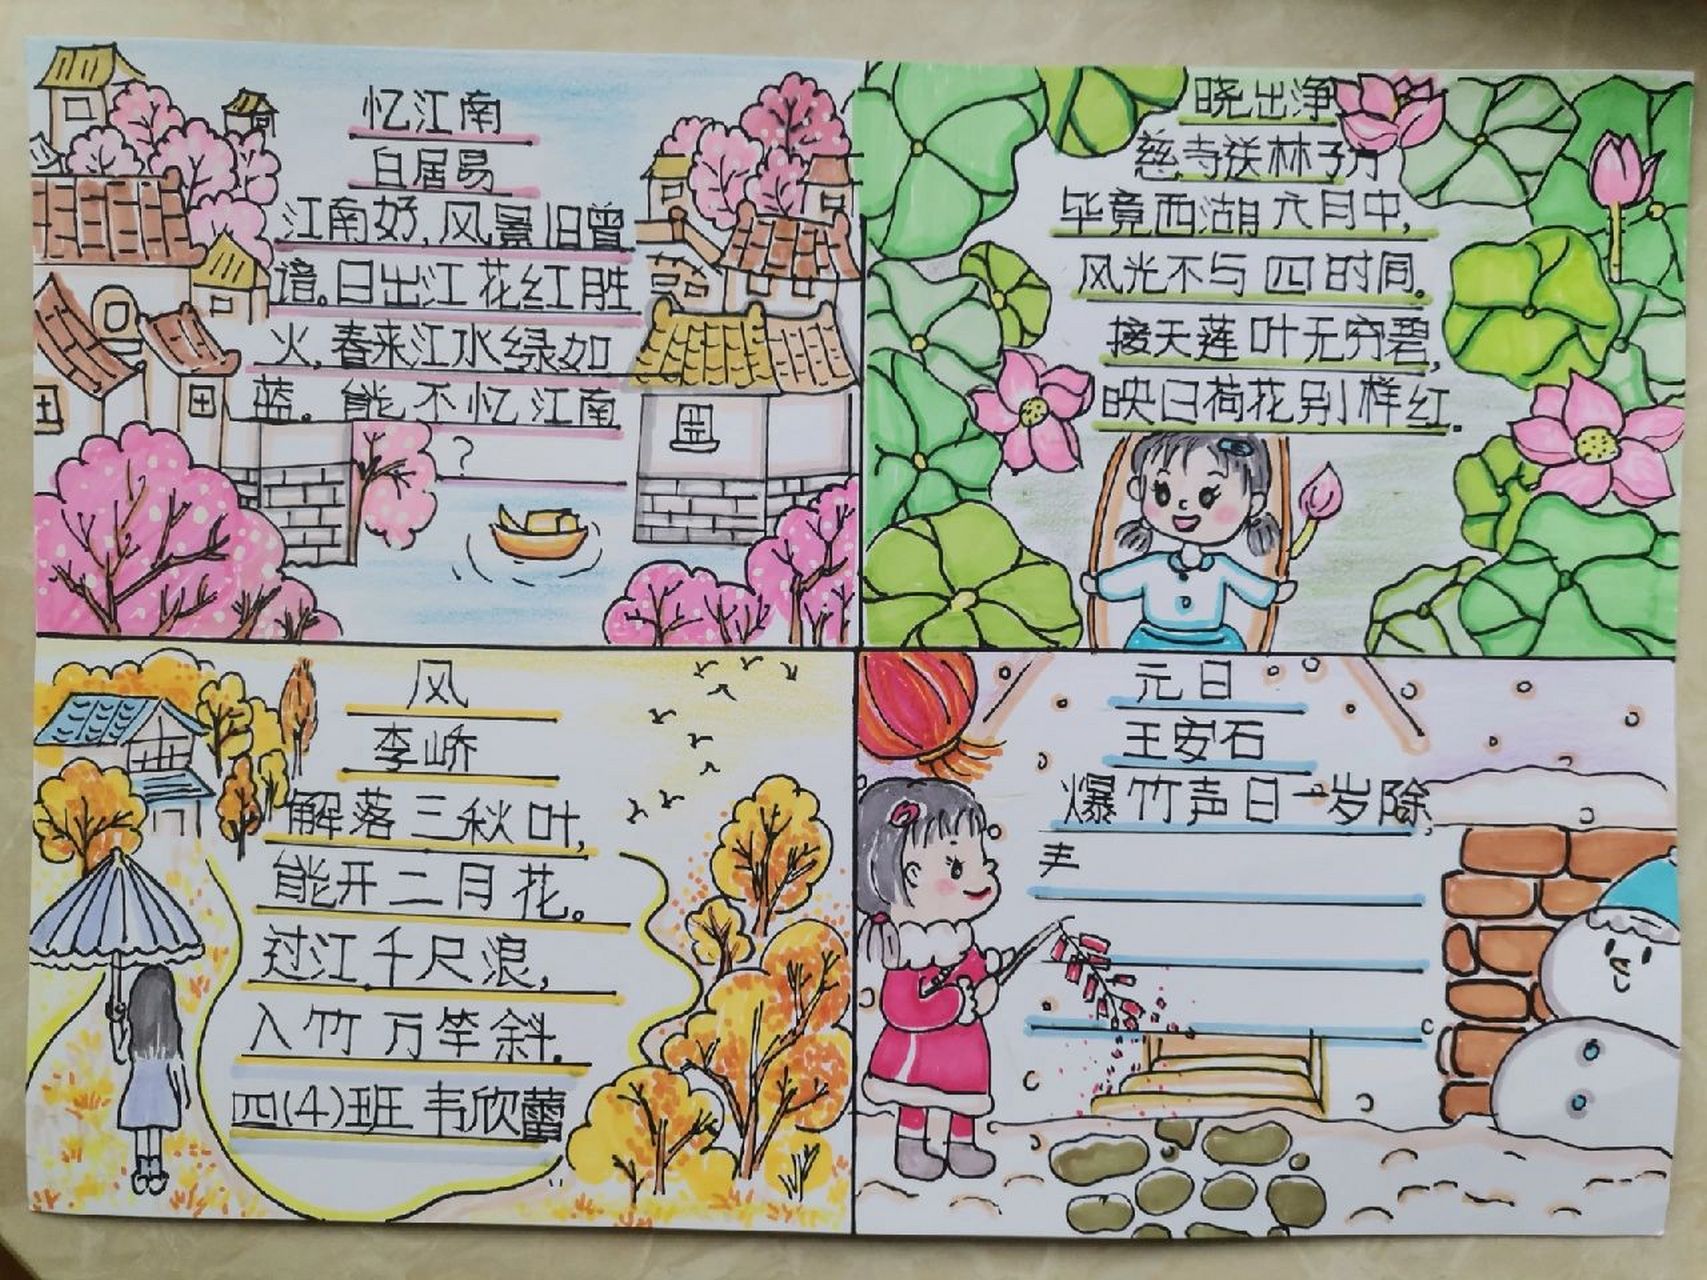 忆江南
白居易
江南好,风景旧曾
谙。日出江花红胜
火,春来江水绿如
蓝。能不忆江南
?
晓出净
慈寺送林子方
毕竟西湖六月中,
风光不与四时同。
接天莲叶无穷碧,
映日荷花别样红.
风
李峤
解落三秋叶,
能开二月花。
过江千尺浪,
入竹万竿斜.
四(4)班 韦欣蕾
元日
王安石
爆竹声日一岁除,